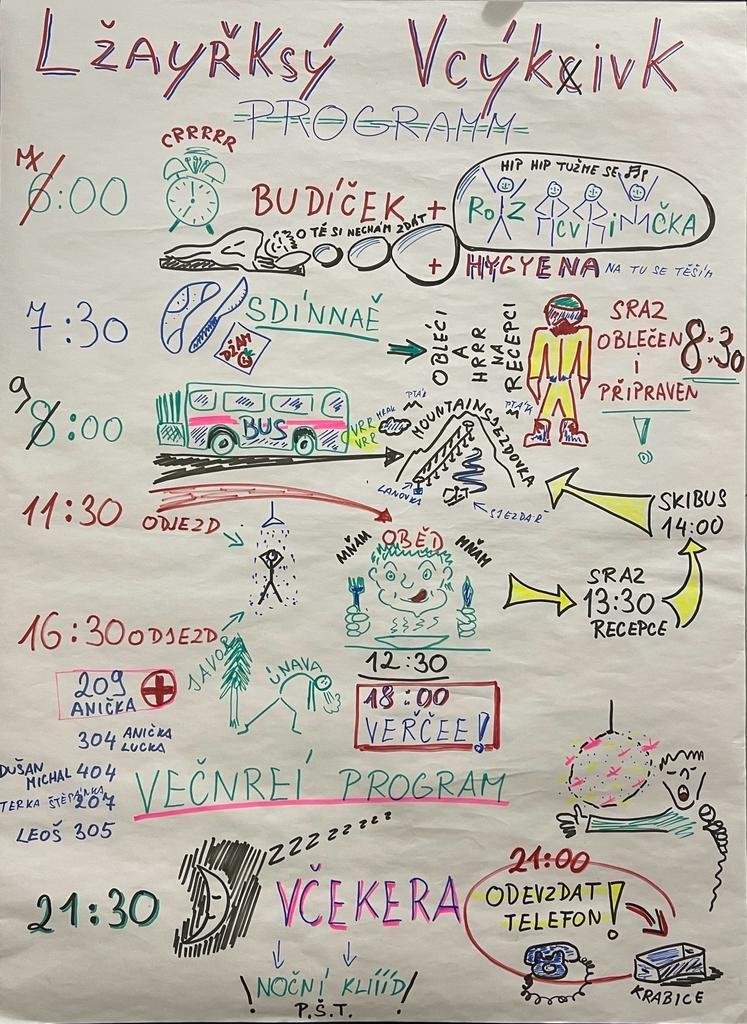 LŽAYŘKSÝ VCÝKXIVK
PROGRAMM
CRRRRR
6:00
BUDÍČEK + ROZCVIČKA
HIP HIP TUŽME SE
O TĚ SI NECHÁM ZDÁT
+ HYGYENA NA TU SE TĚŠÍM
7:30 SDÍNNAĚ
DŽAM
OBLÉCI A HRRR NA RECEPCI
SRAZ OBLEČEN I PŘIPRAVEN ! 8:30
9
8:00
BUS
VRR VRR
MRAK
PTÁK
PTÁK
MOUNTAIN SJEZDOVKA
LANOVKA
SJEZDAŘ
11:30 ODJEZD
MŇAM OBĚD MŇAM
12:30
SRAZ
13:30
RECEPCE
SKIBUS
14:00
16:30 ODJEZD
JAVOR
ÚNAVA
209
ANIČKA
304 ANIČKA LUCKA
DUŠAN MICHAL 404
TERKA ŠTĚPÁNKA 207
LEOŠ 305
18:00
VEŘČEE!
VEČNREÍ PROGRAM
ZZZZZZZZZ
21:30 VČEKERA
21:00
ODEVZDAT TELEFON!
KRABICE
NOČNÍ KLÍÍÍD
P.Š.T.